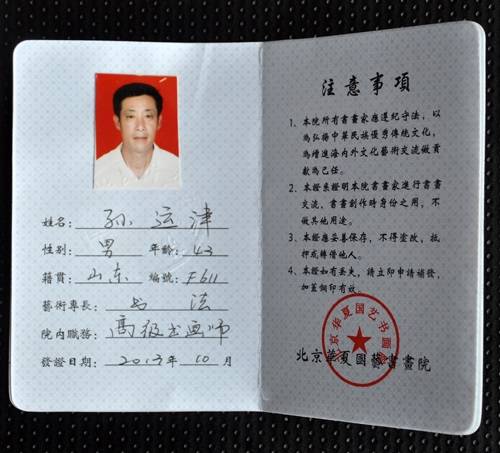 姓名: 孙运津
性别: 男 年齡: 43
籍貫: 山东 编號: F611
藝術專長: 书法
院内職務: 高级书画师
發證日期: 2013年10月
注意事項
1、本院所有書畫家應遵紀守法，以
為弘揚中華民族優秀傳统文化，
為增進海内外文化藝術交流做貢
獻為己任。
2、本證系證明本院書畫家進行書畫
交流，書畫創作時身份之用，不
做其他用途。
3、本證應妥善保存，不得塗改，抵
押或轉借他人。
4、本證如有丢失，請立即申請補發，
加蓋鋼印有效。
北京华夏国艺书画院
北京華夏國藝書畫院